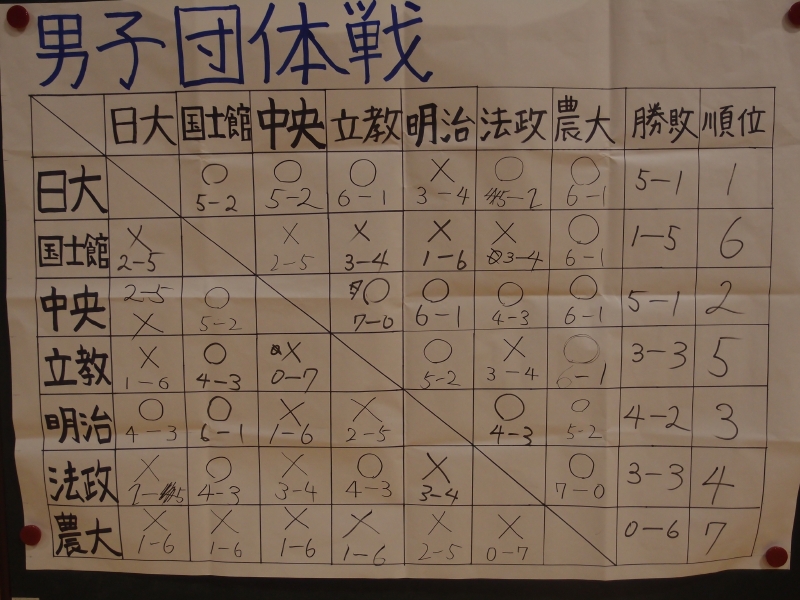 男子団体戦
日大 国士館 中央 立教 明治 法政 農大 勝敗 順位
日大 ○ 5-2 ○ 5-2 ○ 6-1 × 3-4 ○ 5-2 ○ 6-1 5-1 1
国士館 × 2-5 × 2-5 × 3-4 × 1-6 × 3-4 ○ 6-1 1-5 6
中央 2-5 × ○ 5-2 ○ 7-0 ○ 6-1 ○ 4-3 ○ 6-1 5-1 2
立教 × 1-6 ○ 4-3 × 0-7 ○ 5-2 × 3-4 ○ 6-1 3-3 5
明治 ○ 4-3 ○ 6-1 × 1-6 × 2-5 ○ 4-3 ○ 5-2 4-2 3
法政 × 2-5 ○ 4-3 × 3-4 ○ 4-3 × 3-4 ○ 7-0 3-3 4
農大 × 1-6 × 1-6 × 1-6 × 1-6 × 2-5 × 0-7 0-6 7